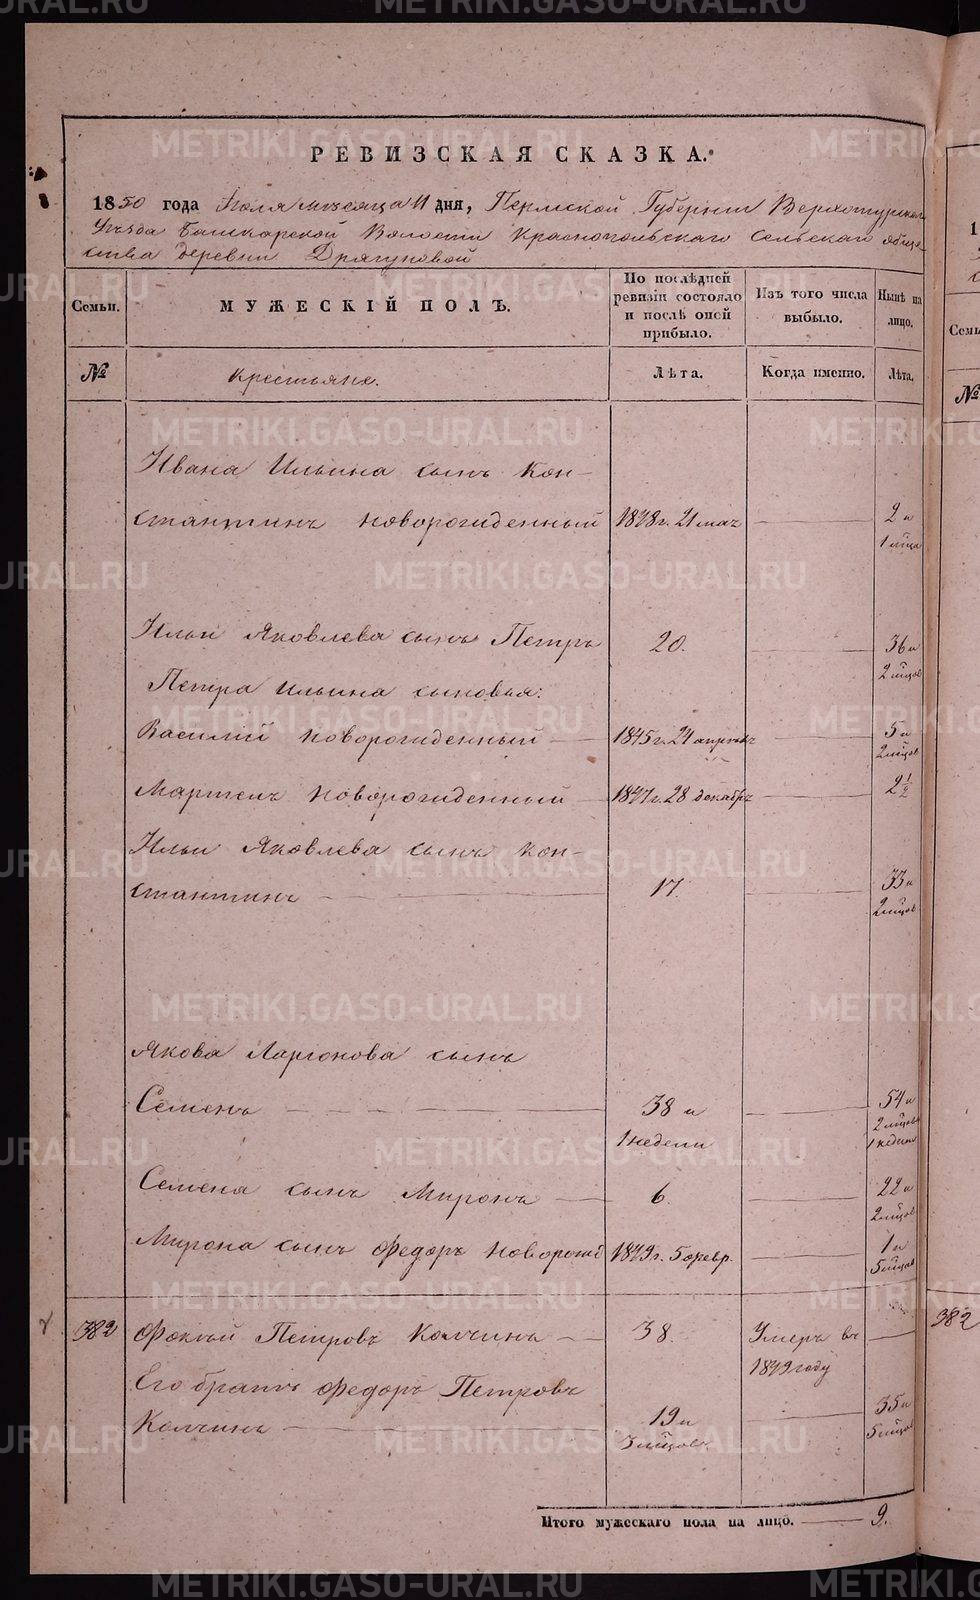 РЕВИЗСКАЯ СКАЗКА.
1850 года Июля месяца 11 дня, Пермской Губернии Верхотурскаго
Уѣзда Башкарской Волости Краснопольскаго Сельскаго обще-
ства деревни Дрягуновой
Семьи.
МУЖЕСКІЙ ПОЛЪ.
По послѣдней ревизіи состояло и послѣ оной прибыло.
Изъ того числа выбыло.
Нынѣ на лицо.
№
Крестьяне.
Лѣта.
Когда именно.
Лѣта.
Ивана Ильина сынъ Кон-
стантинъ новорожденный 1848 г. 21 мая 2 и
1 мѣца
Ильи Яковлева сынъ Петръ 20. 36 и
2 мѣцов
Петра Ильина сыновья:
Василій новорожденный 1845 г. 24 апреля 5 и
2 мѣцов
Мартинъ новорожденный 1847 г. 28 декабр 2 1/2
Ильи Яковлева сынъ Кон-
стантинъ 17. 33 и
2 мѣцов
Якова Ларионова сынъ
Семенъ 38 и 54 и
1 недели 2 мѣцов
1 недели
Семена сынъ Миронъ 6. 22 и
2 мѣцов
Мирона сынъ Федоръ новорожд 1849 г. 5 февр. 1 и
5 мѣцов
382 Фокѣй Петровъ Колчинъ 38. Умеръ въ
1849 году
Его братъ Федоръ Петровъ
Колчинъ 19 и 35 и
3 мѣцовъ 5 мѣцов
Итого мужескаго пола на лицо. 9.
382
METRIKI.GASO-URAL.RU